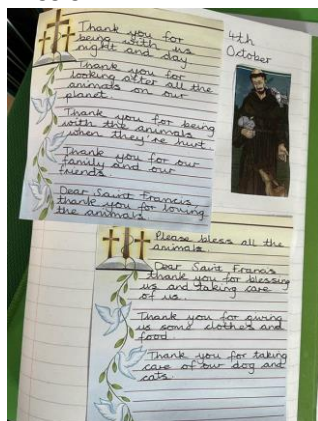 Thank you for
being with us
night and day
Thank you for
looking after all the
animals on our
planet.
Thank you for being
with the animals
when they're hurt.
Thank you for our
family and our
friends.
Dear Saint Francis,
thank you for loving
the animals.
4th
October
Please bless all the
animals.
Dear Saint Francis
thank you for blessing
us and taking care
of us.
Thank you for giving
us some clothes and
food.
Thank you for taking
care of our dog and
cats.